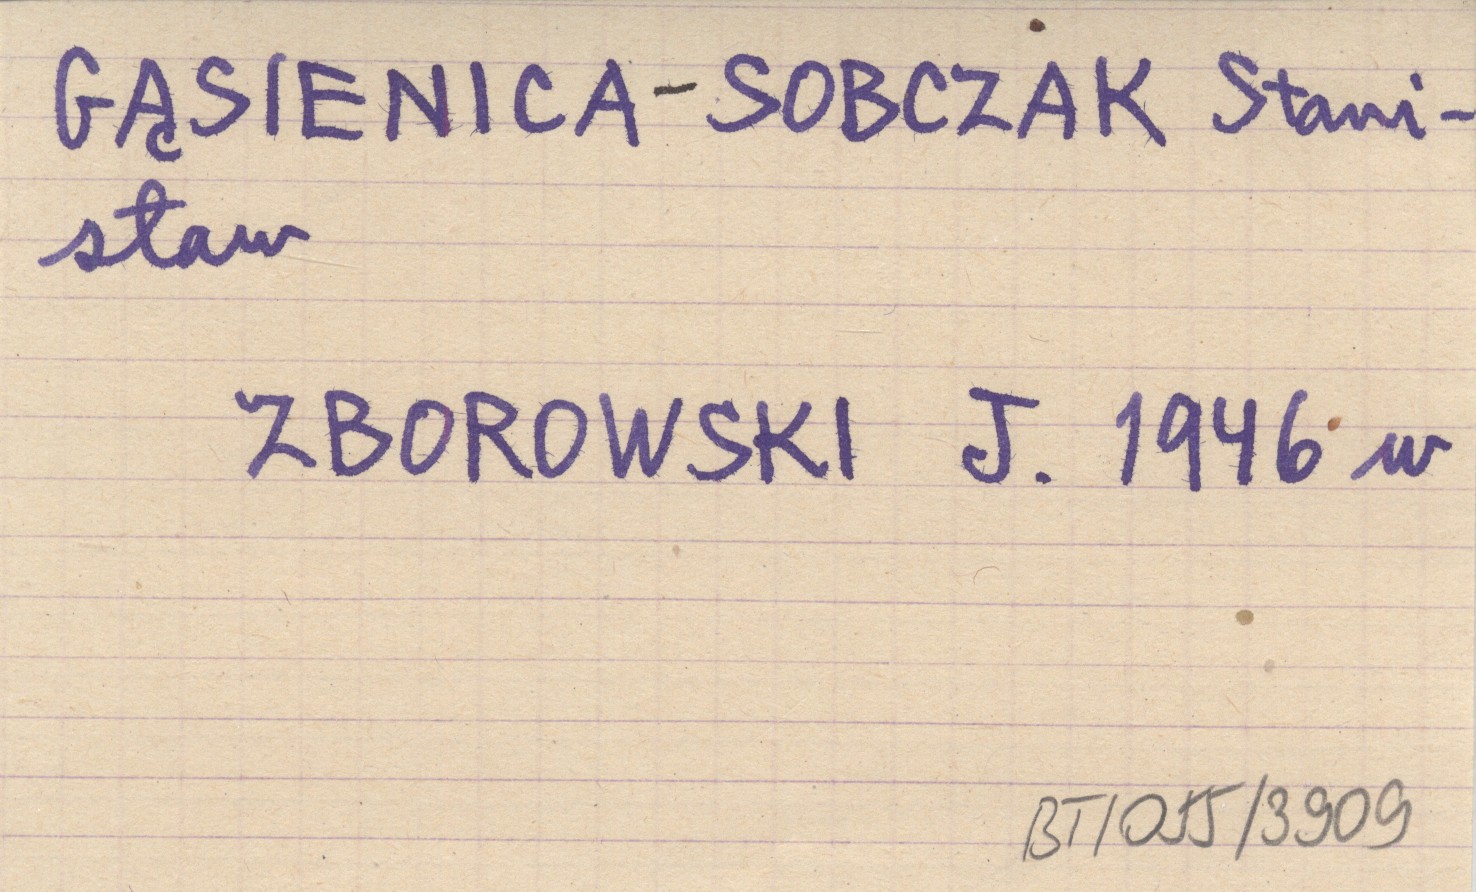 GĄSIENICA-SOBCZAK Stani-
sław
ZBOROWSKI J. 1946 w
BT/055/3909